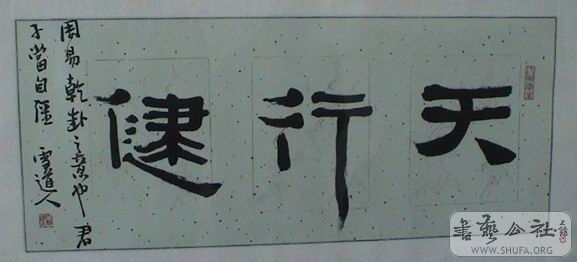 天行健
周易乾卦之意也君
子當自彊 雪道人
書藝公社
WWW.SHUFA.ORG